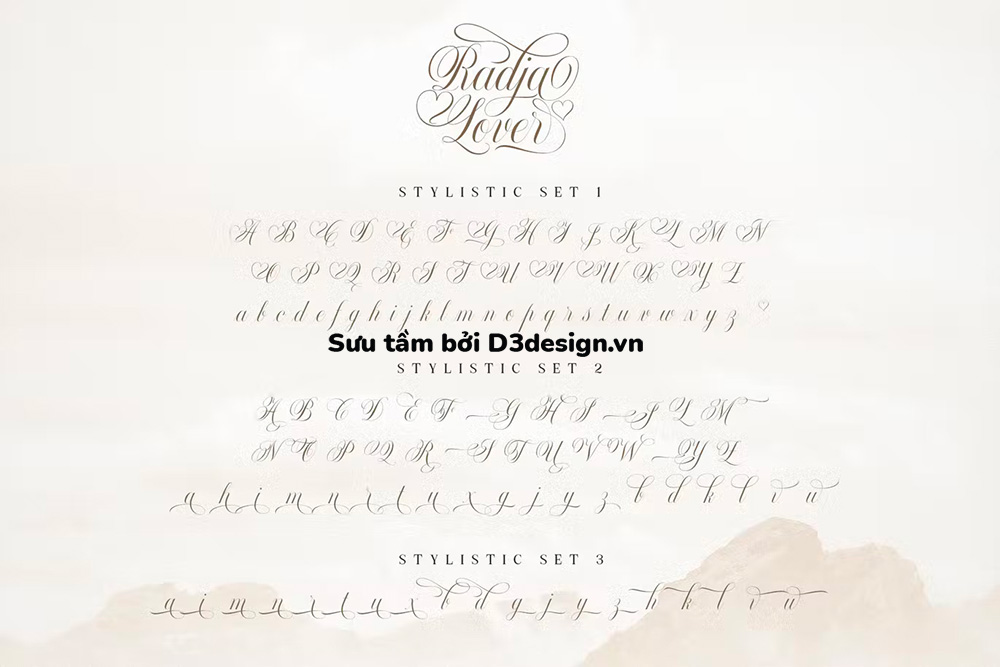 Radja
Lover
STYLISTIC SET 1
A B C D E F G H I J K L M N
O P Q R S T U V W X Y Z
a b c d e f g h i j k l m n o p q r s t u v w x y z
Sưu tầm bởi D3design.vn
STYLISTIC SET 2
A B C D E F G H I J L M
N O P Q R S T U V W Y Z
STYLISTIC SET 3